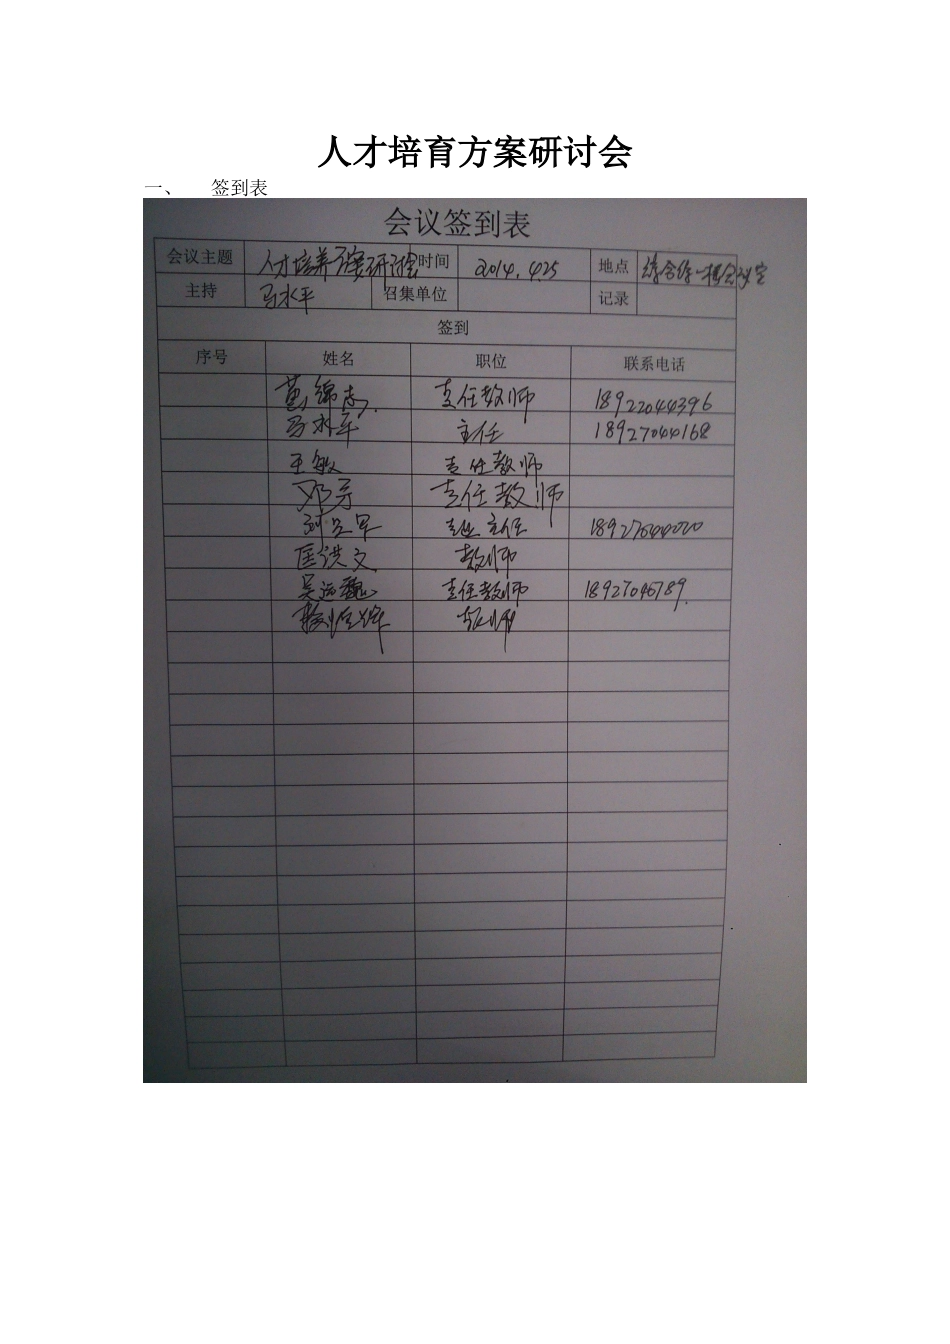 人才培育方案研讨会
一、 签到表
会议签到表
会议主题 人才培养方案研讨会 时间 2014.4.25 地点 综合
主持 马水平 召集单位 记录
签到
序号 姓名 职位 联系电话
锦志 责任教师 18922044396
马水平 主任 18927044168
王敏 责任教师
邓芳 责任教师
主任 18927044020
匡洪文 教师
吴运魏 责任教师 18927046789
教师